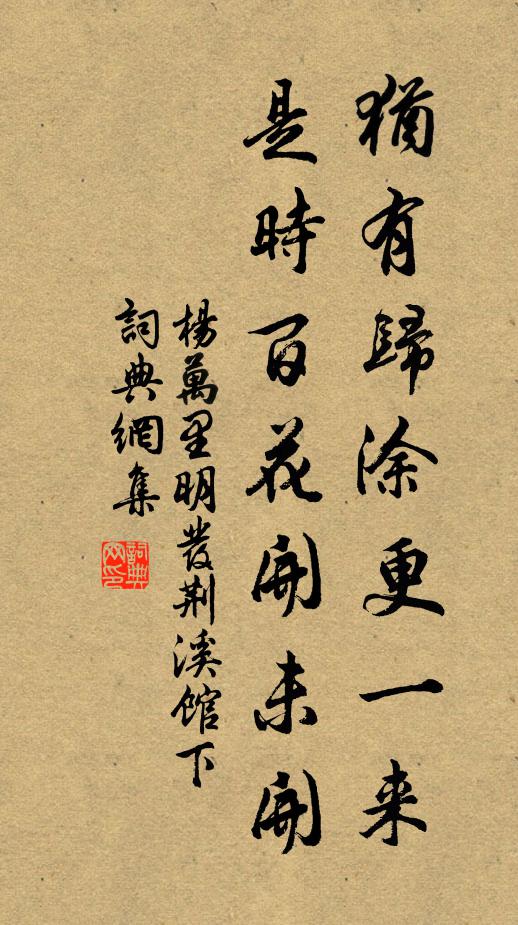 猶有歸涂更一来
是時百花開未開
楊萬里明發荆溪館下
詞典網集
詞典網印